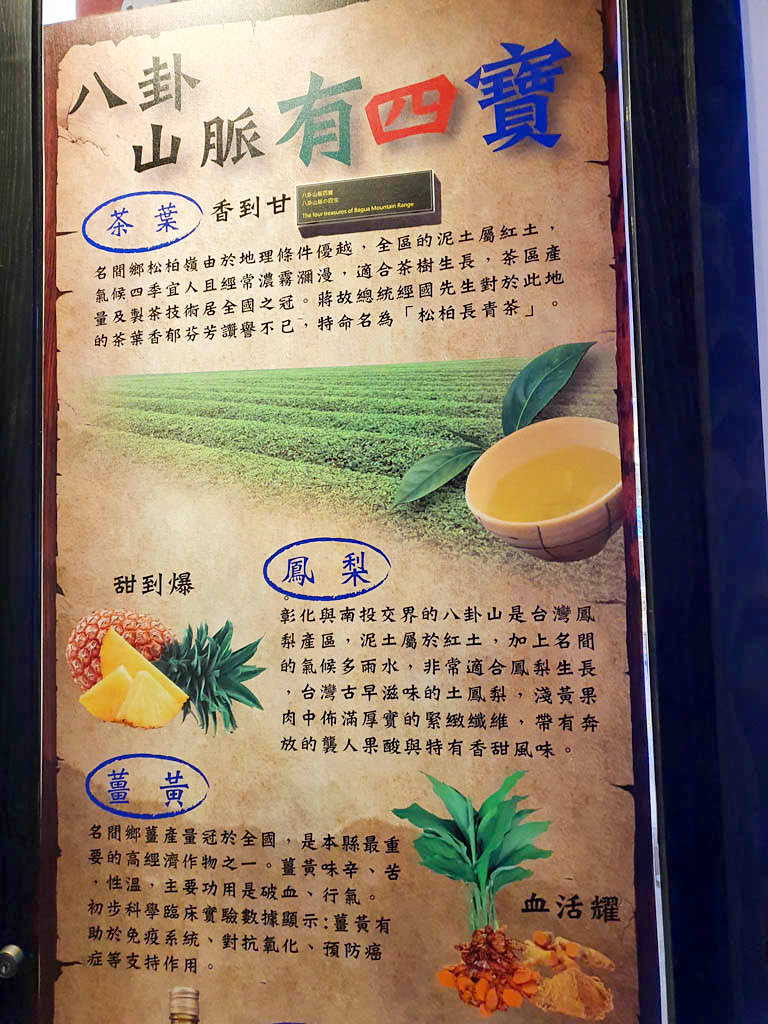 八卦
山脈有四寶
八卦山脈四寶
八卦山脈の四宝
The four treasures of Bagua Mountain Range
茶葉 香到甘
名間鄉松柏嶺由於地理條件優越，全區的泥土屬紅土，
氣候四季宜人且經常濃霧瀰漫，適合茶樹生長，茶區產
量及製茶技術居全國之冠。蔣故總統經國先生對於此地
的茶葉香郁芬芳讚譽不已，特命名為「松柏長青茶」。
鳳梨
甜到爆
彰化與南投交界的八卦山是台灣鳳
梨產區，泥土屬於紅土，加上名間
的氣候多雨水，非常適合鳳梨生長
，台灣古早滋味的土鳳梨，淺黃果
肉中佈滿厚實的緊緻纖維，帶有奔
放的襲人果酸與特有香甜風味。
薑黃
名間鄉薑產量冠於全國，是本縣最重
要的高經濟作物之一。薑黃味辛、苦
，性溫，主要功用是破血、行氣。
初步科學臨床實驗數據顯示:薑黃有
助於免疫系統、對抗氧化、預防癌
症等支持作用。
血活耀